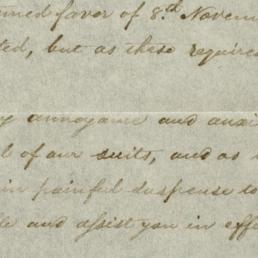 favor of 8.th Novem
ted, but as these require
annoyance and anxi
of our suits, and as
in painful suspense to
and assist you in eff